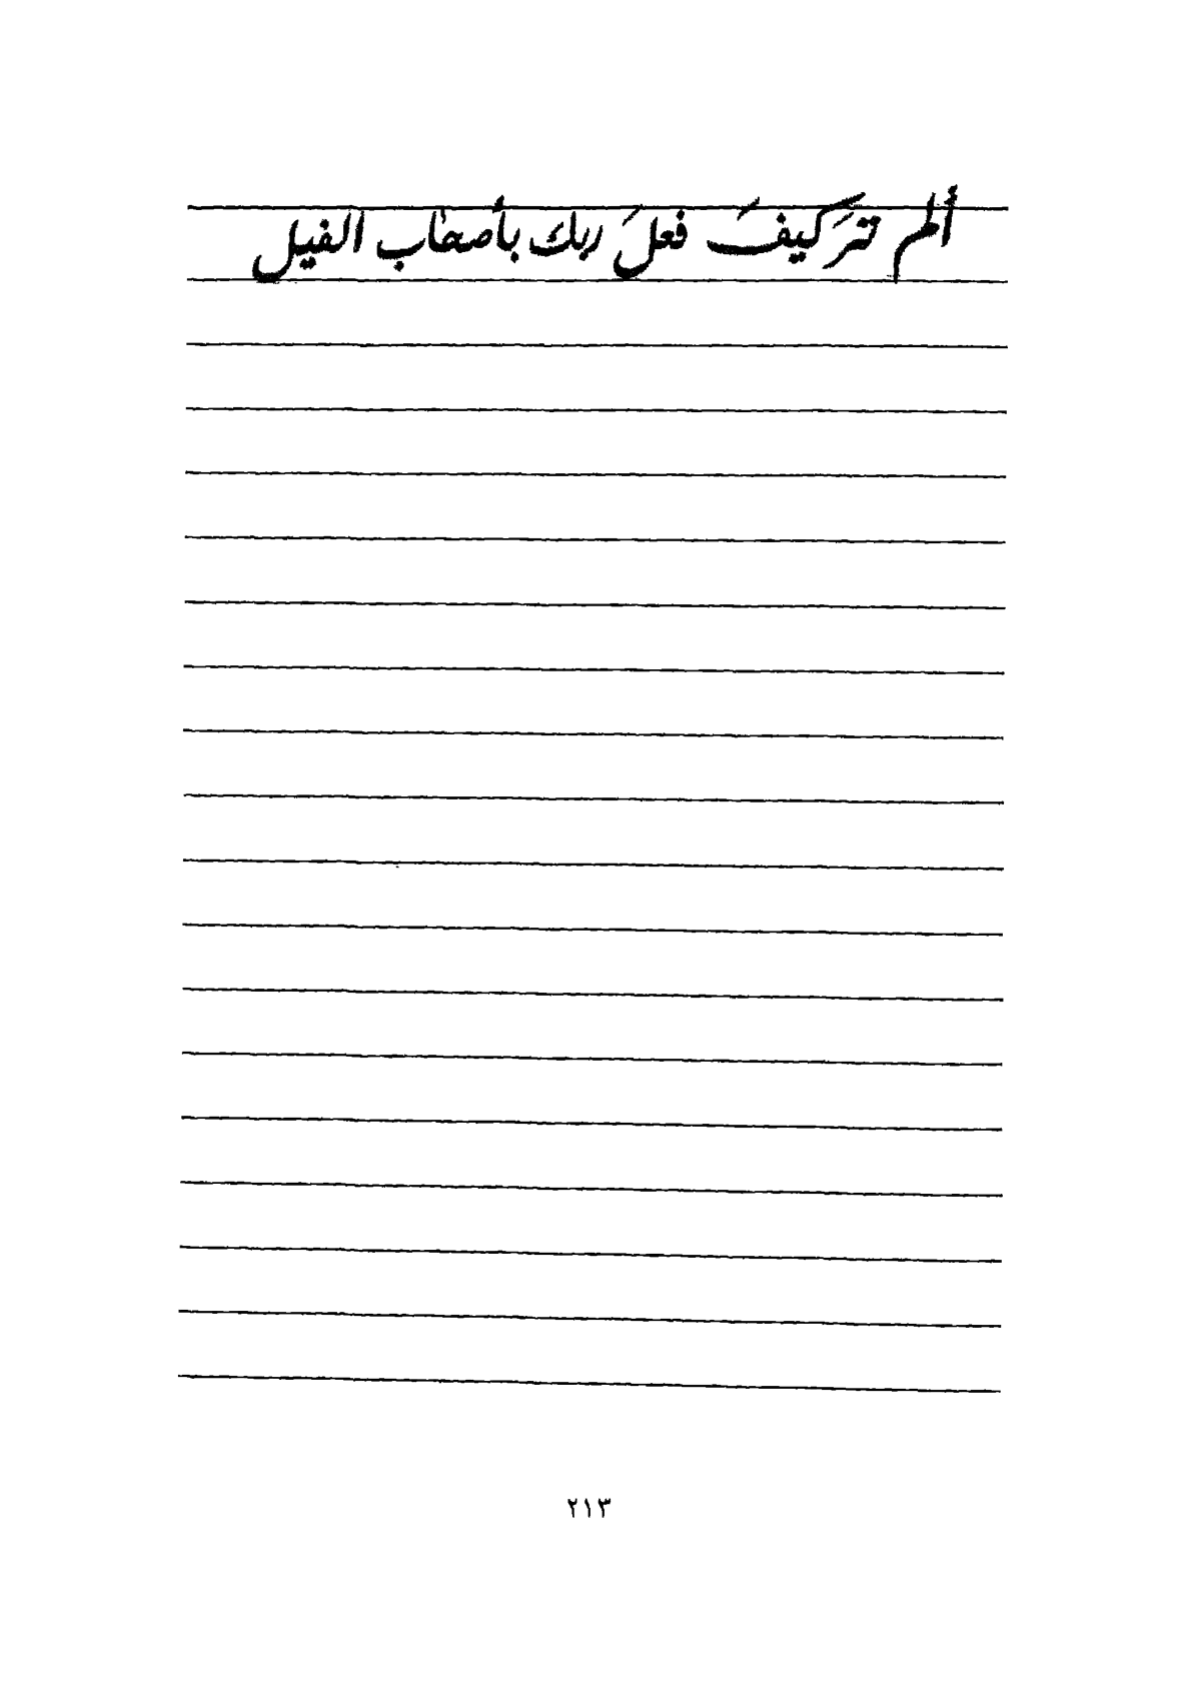 ألم ترَ كيفَ فعلَ ربك بأصحاب الفيل
٢١٣